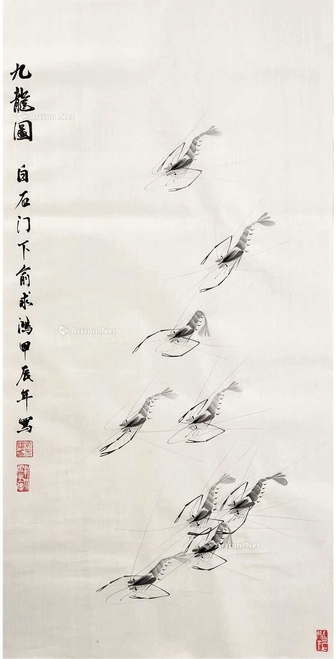 九龍圖 白石门下俞求鴻甲辰年寫
Artron.Net
Artron.Net
Artron.Net
Artron.Net